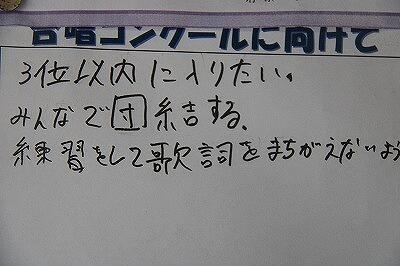 合唱コンクールに向けて
3位以内に入りたい。
みんなで団結する。
練習をして歌詞をまちがえないよう